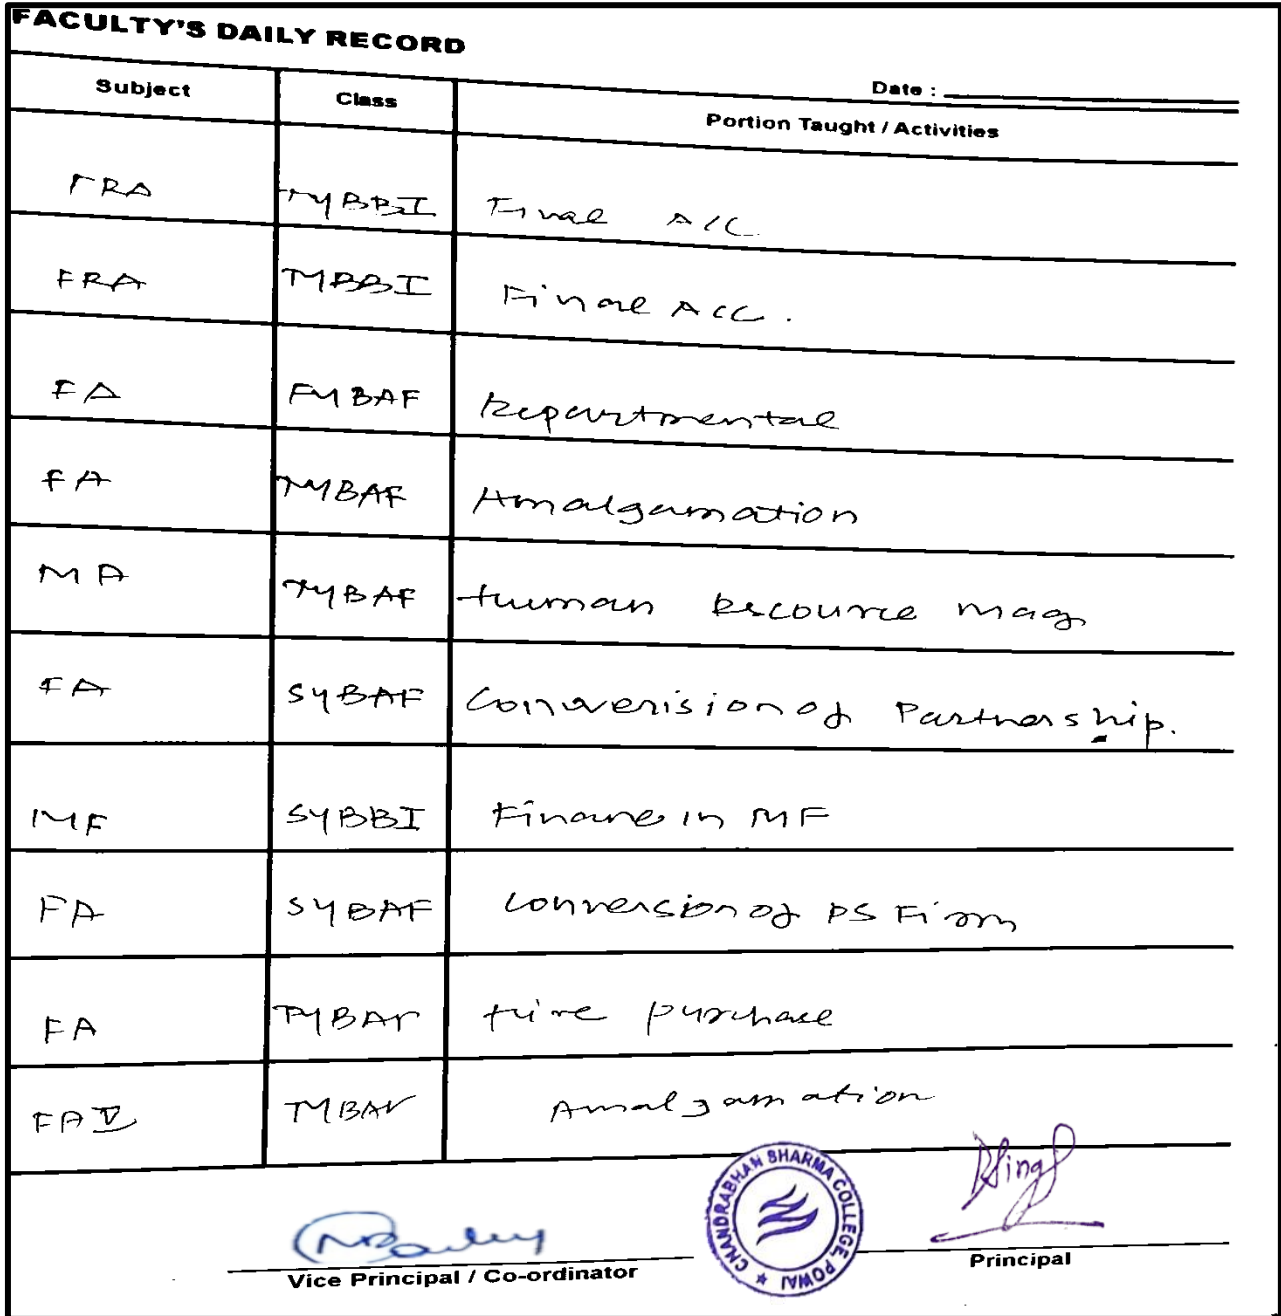 FACULTY'S DAILY RECORD
Date :
Subject Class Portion Taught / Activities
FRA TYBBI Final A/C
FRA TYBBI Final Acc.
FA FYBAF Departmental
FA TYBAF Amalgamation
MA TYBAF Human Rescource Mag
FA SYBAF Converision of Partnership.
MF SYBBI Finance in MF
FA SYBAF Conversion of PS Firm
FA TYBAF Hire purchase
FA V TYBAF Amalgamation
CHANDRABHAN SHARMA COLLEGE, POWAI
Vice Principal / Co-ordinator
Principal